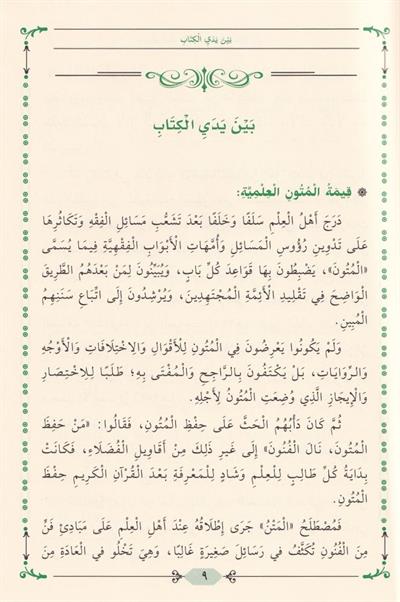 بَيْنَ يَدَيِ الْكِتَابِ
بَيْنَ يَدَيِ الْكِتَابِ
قِيمَةُ الْمُتُونِ الْعِلْمِيَّةِ:
دَرَجَ أَهْلُ الْعِلْمِ سَلَفًا وَخَلَفًا بَعْدَ تَشَعُّبِ مَسَائِلِ الْفِقْهِ وَتَكَاثُرِهَا
عَلَى تَدْوِينِ رُؤُوسِ الْمَسَائِلِ وَأُمَّهَاتِ الْأَبْوَابِ الْفِقْهِيَّةِ فِيمَا يُسَمَّى
«الْمُتُونَ»، يَضْبِطُونَ بِهَا قَوَاعِدَ كُلِّ بَابٍ، وَيُبَيِّنُونَ لِمَنْ بَعْدَهُمُ الطَّرِيقَ
الْوَاضِحَ فِي تَقْلِيدِ الْأَئِمَّةِ الْمُجْتَهِدِينَ، وَيُرْشِدُونَ إِلَى اتِّبَاعِ سَنَنِهِمُ
الْمُبِينِ.
وَلَمْ يَكُونُوا يَعْرِضُونَ فِي الْمُتُونِ لِلْأَقْوَالِ وَالِاخْتِلَافَاتِ وَالْأَوْجُهِ
وَالرِّوَايَاتِ، بَلْ يَكْتَفُونَ بِالرَّاجِحِ وَالْمُفْتَى بِهِ؛ طَلَبًا لِلِاخْتِصَارِ
وَالْإِيجَازِ الَّذِي وُضِعَتِ الْمُتُونُ لِأَجْلِهِ.
ثُمَّ كَانَ دَأْبُهُمُ الْحَثَّ عَلَى حِفْظِ الْمُتُونِ، فَقَالُوا: «مَنْ حَفِظَ
الْمُتُونَ، نَالَ الْفُنُونَ» إِلَى غَيْرِ ذَلِكَ مِنْ أَقَاوِيلِ الْفُضَلَاءِ، فَكَانَتْ
بِدَايَةُ كُلِّ طَالِبٍ لِلْعِلْمِ وَشَادٍ لِلْمَعْرِفَةِ بَعْدَ الْقُرْآنِ الْكَرِيمِ حِفْظَ
الْمُتُونِ.
فَمُصْطَلَحُ «الْمَتْنُ» جَرَى إِطْلَاقُهُ عِنْدَ أَهْلِ الْعِلْمِ عَلَى مَبَادِئِ فَنٍّ
مِنَ الْفُنُونِ تُكَثَّفُ فِي رَسَائِلَ صَغِيرَةٍ غَالِبًا، وَهِيَ تَخْلُو فِي الْعَادَةِ مِنْ
٩